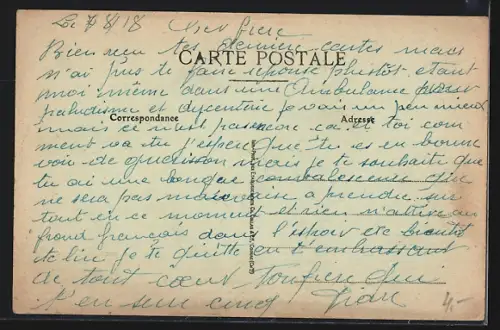 Le 7/8/18 Cher frere
Bien reçu tes derniere cartes mais
CARTE POSTALE
n'ai pus te faire reponse plustot etant
moi même dans une Ambulance pour
paludisme et dycenterie je vais un peu mieux
Correspondance
Adresse
mais ce n'est pas encore ca et toi com
ment va tu j'espere que tu es en bonne
voie de guerison mais je te souhaite que
tu ai une longue convalescence qui
ne sera pas mauvaise a prendre sur
tout en ce moment et rien n'attire au
front français dans l'espoir etc bientôt
te lire je te quitte en t'embrassant
de tout cœur Ton frere qui
t'en serre cinq
4,-